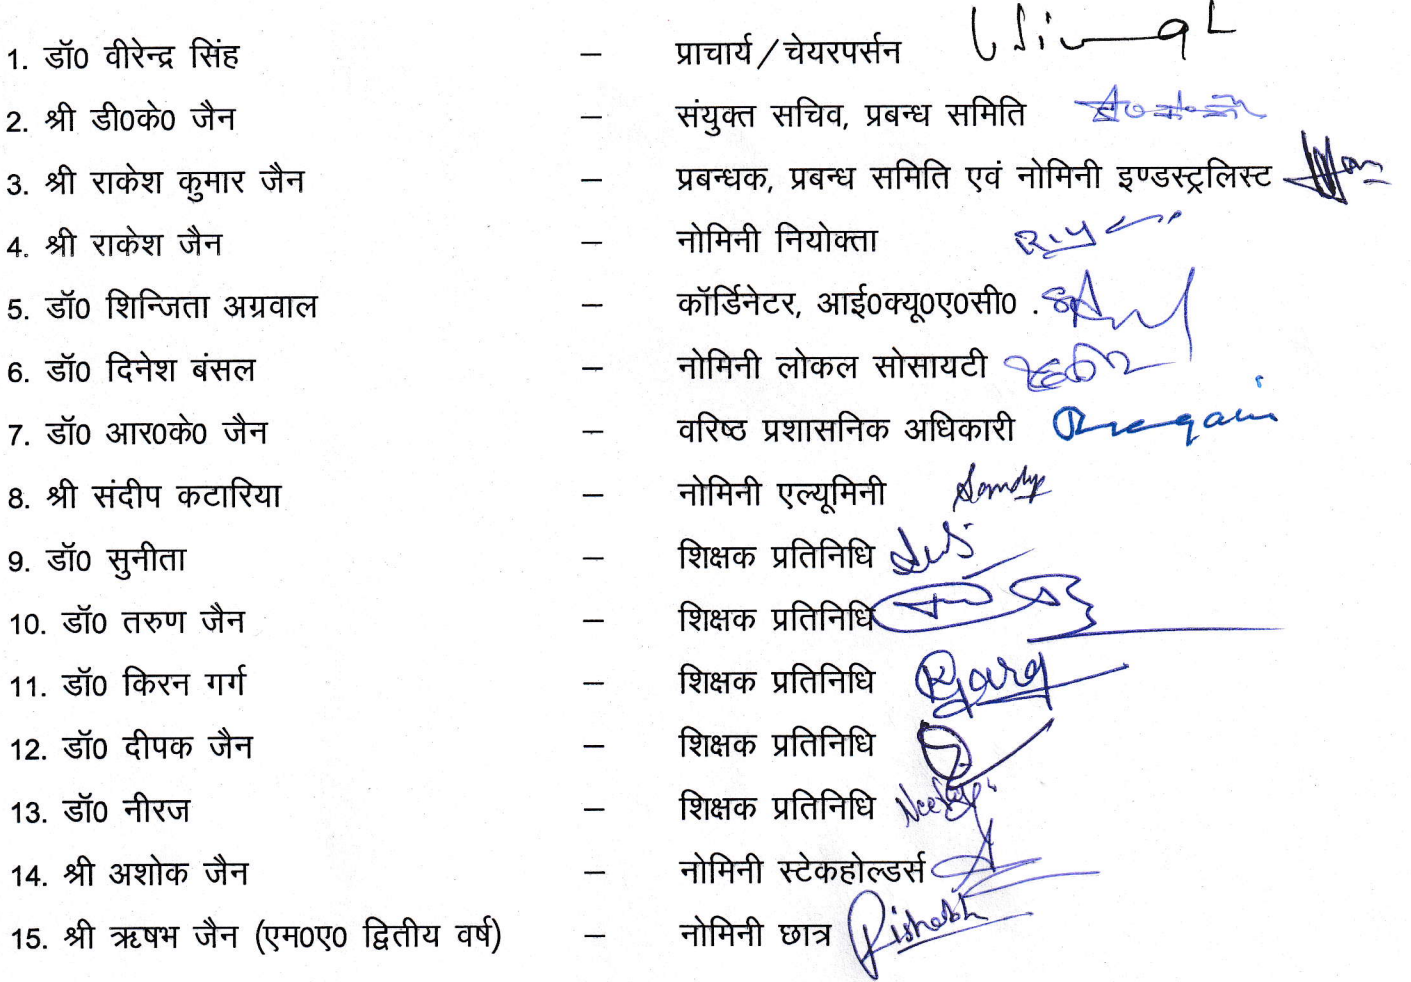 1. डॉ0 वीरेन्द्र सिंह – प्राचार्य/चेयरपर्सन
2. श्री डी0के0 जैन – संयुक्त सचिव, प्रबन्ध समिति
3. श्री राकेश कुमार जैन – प्रबन्धक, प्रबन्ध समिति एवं नोमिनी इण्डस्ट्रलिस्ट
4. श्री राकेश जैन – नोमिनी नियोक्ता
5. डॉ0 शिन्जिता अग्रवाल – कॉर्डिनेटर, आई0क्यू0ए0सी0 .
6. डॉ0 दिनेश बंसल – नोमिनी लोकल सोसायटी
7. डॉ0 आर0के0 जैन – वरिष्ठ प्रशासनिक अधिकारी
8. श्री संदीप कटारिया – नोमिनी एल्यूमिनी
9. डॉ0 सुनीता – शिक्षक प्रतिनिधि
10. डॉ0 तरुण जैन – शिक्षक प्रतिनिधि
11. डॉ0 किरन गर्ग – शिक्षक प्रतिनिधि
12. डॉ0 दीपक जैन – शिक्षक प्रतिनिधि
13. डॉ0 नीरज – शिक्षक प्रतिनिधि
14. श्री अशोक जैन – नोमिनी स्टेकहोल्डर्स
15. श्री ऋषभ जैन (एम0ए0 द्वितीय वर्ष) – नोमिनी छात्र Rishabh